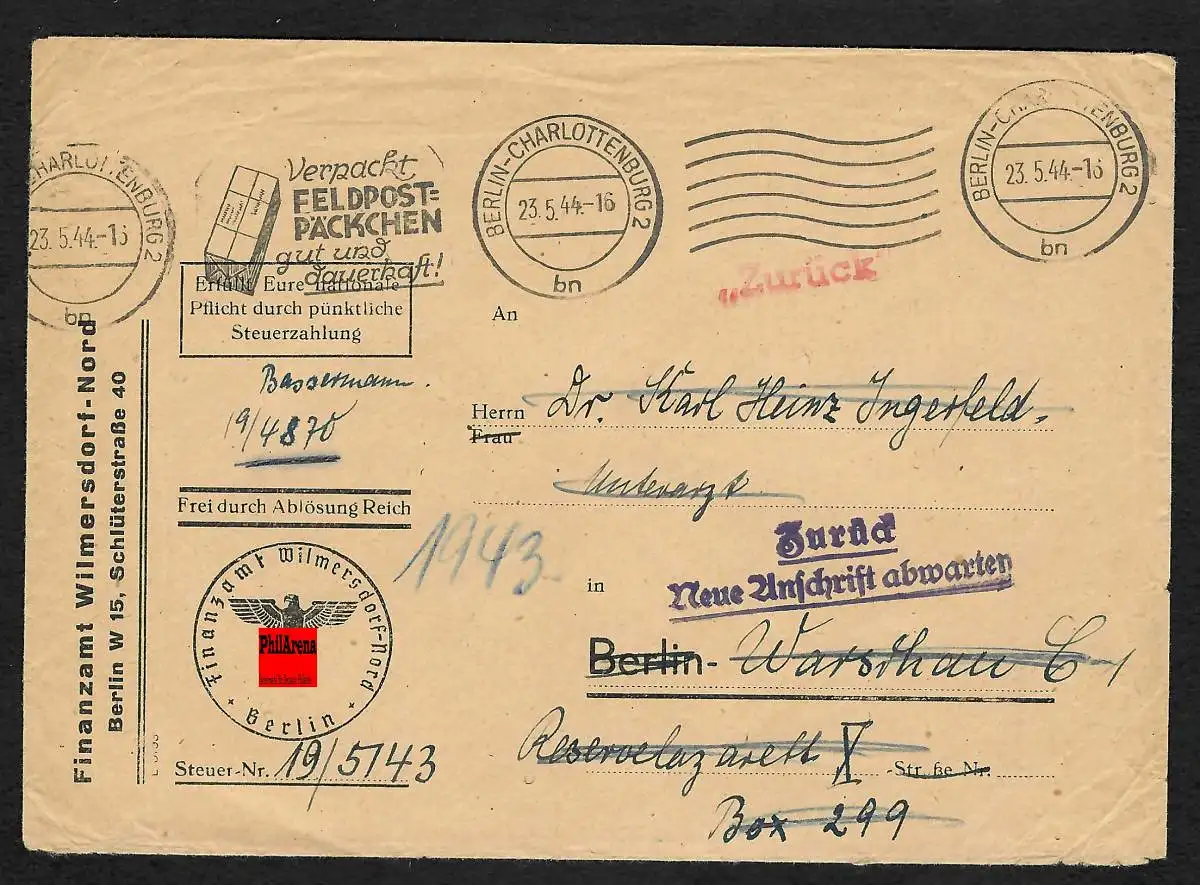 CHARLOTTENBURG 2
23.5.44.-16
bn
Verpackt
FELDPOST=
PÄCKCHEN
gut und
dauerhaft!
BERLIN-CHARLOTTENBURG 2
23.5.44.-16
bn
BERLIN-CHARLOTTENBURG 2
23.5.44.-16
bn
„Zurück"
Erfüllt Eure nationale
Pflicht durch pünktliche
Steuerzahlung
An
Bassermann.
19/4870
Herrn Dr. Karl Heinz Ingerfeld,
Frau
Unterarzt
Frei durch Ablösung Reich
1943
Zurück
Neue Anschrift abwarten
in
Berlin- Warschau C-1
Reservelazarett X -Straße Nr.
Box 299
Finanzamt Wilmersdorf-Nord
Berlin W 15, Schlüterstraße 40
Finanzamt Wilmersdorf-Nord
Berlin
PhilArena
Steuer-Nr. 19/5143